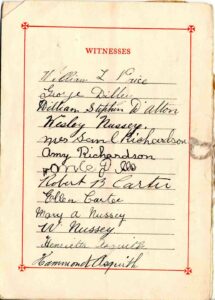 WITNESSES
William L Price
George Dilley
William Stephen D'Alton
Wesley Nussey
Mrs Sam Richardson
Amy Richardson
Robert B Carter
Ellen Carter
Mary A Nussey
W Nussey
Henrietta Asquith
Hammond Asquith